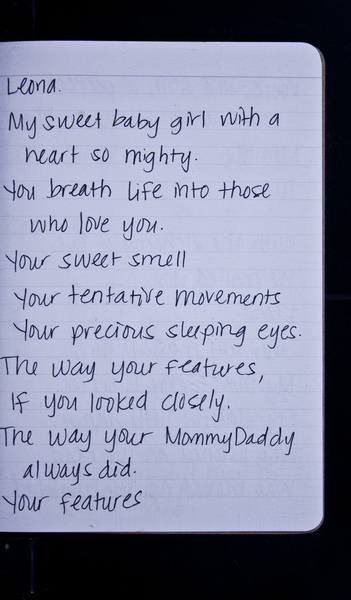 Leona.
My sweet baby girl with a
heart so mighty.
You breath life into those
who love you.
Your sweet smell
Your tentative movements
Your precious sleeping eyes.
The way your features,
If you looked closely.
The way your MommyDaddy
always did.
Your features